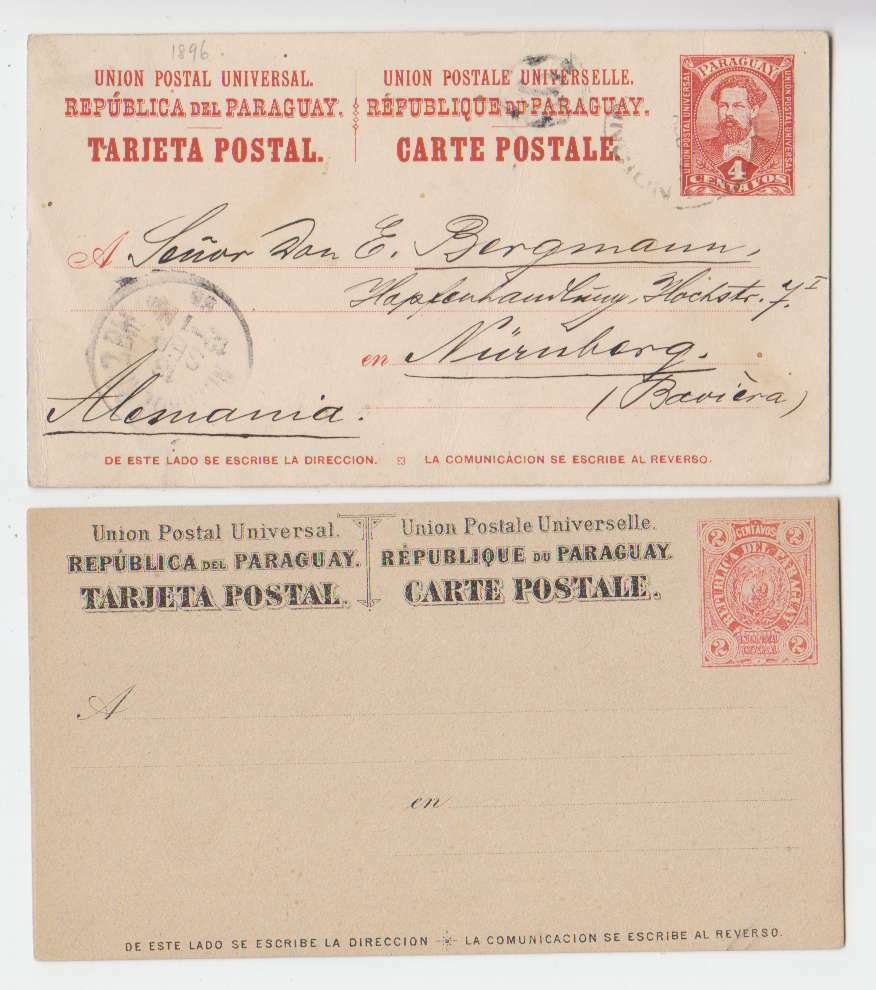 1896.
UNION POSTAL UNIVERSAL.
REPÚBLICA DEL PARAGUAY.
TARJETA POSTAL.
UNION POSTALE UNIVERSELLE.
RÉPUBLIQUE DU PARAGUAY.
CARTE POSTALE.
UNION POSTAL UNIVERSAL
PARAGUAY
UNION POSTAL UNIVERSAL
4
CENTAVOS
A Señor Don E. Bergmann,
Hopfenhandlung, Hochstr. 7 I
en Nürnberg.
Alemania. (Bavièra)
DE ESTE LADO SE ESCRIBE LA DIRECCION. LA COMUNICACION SE ESCRIBE AL REVERSO.
Union Postal Universal.
REPÚBLICA DEL PARAGUAY.
TARJETA POSTAL.
Union Postale Universelle.
RÉPUBLIQUE DU PARAGUAY.
CARTE POSTALE.
2 CENTAVOS 2
REPUBLICA DEL PARAGUAY
2 2
A
en
DE ESTE LADO SE ESCRIBE LA DIRECCION LA COMUNICACION SE ESCRIBE AL REVERSO.